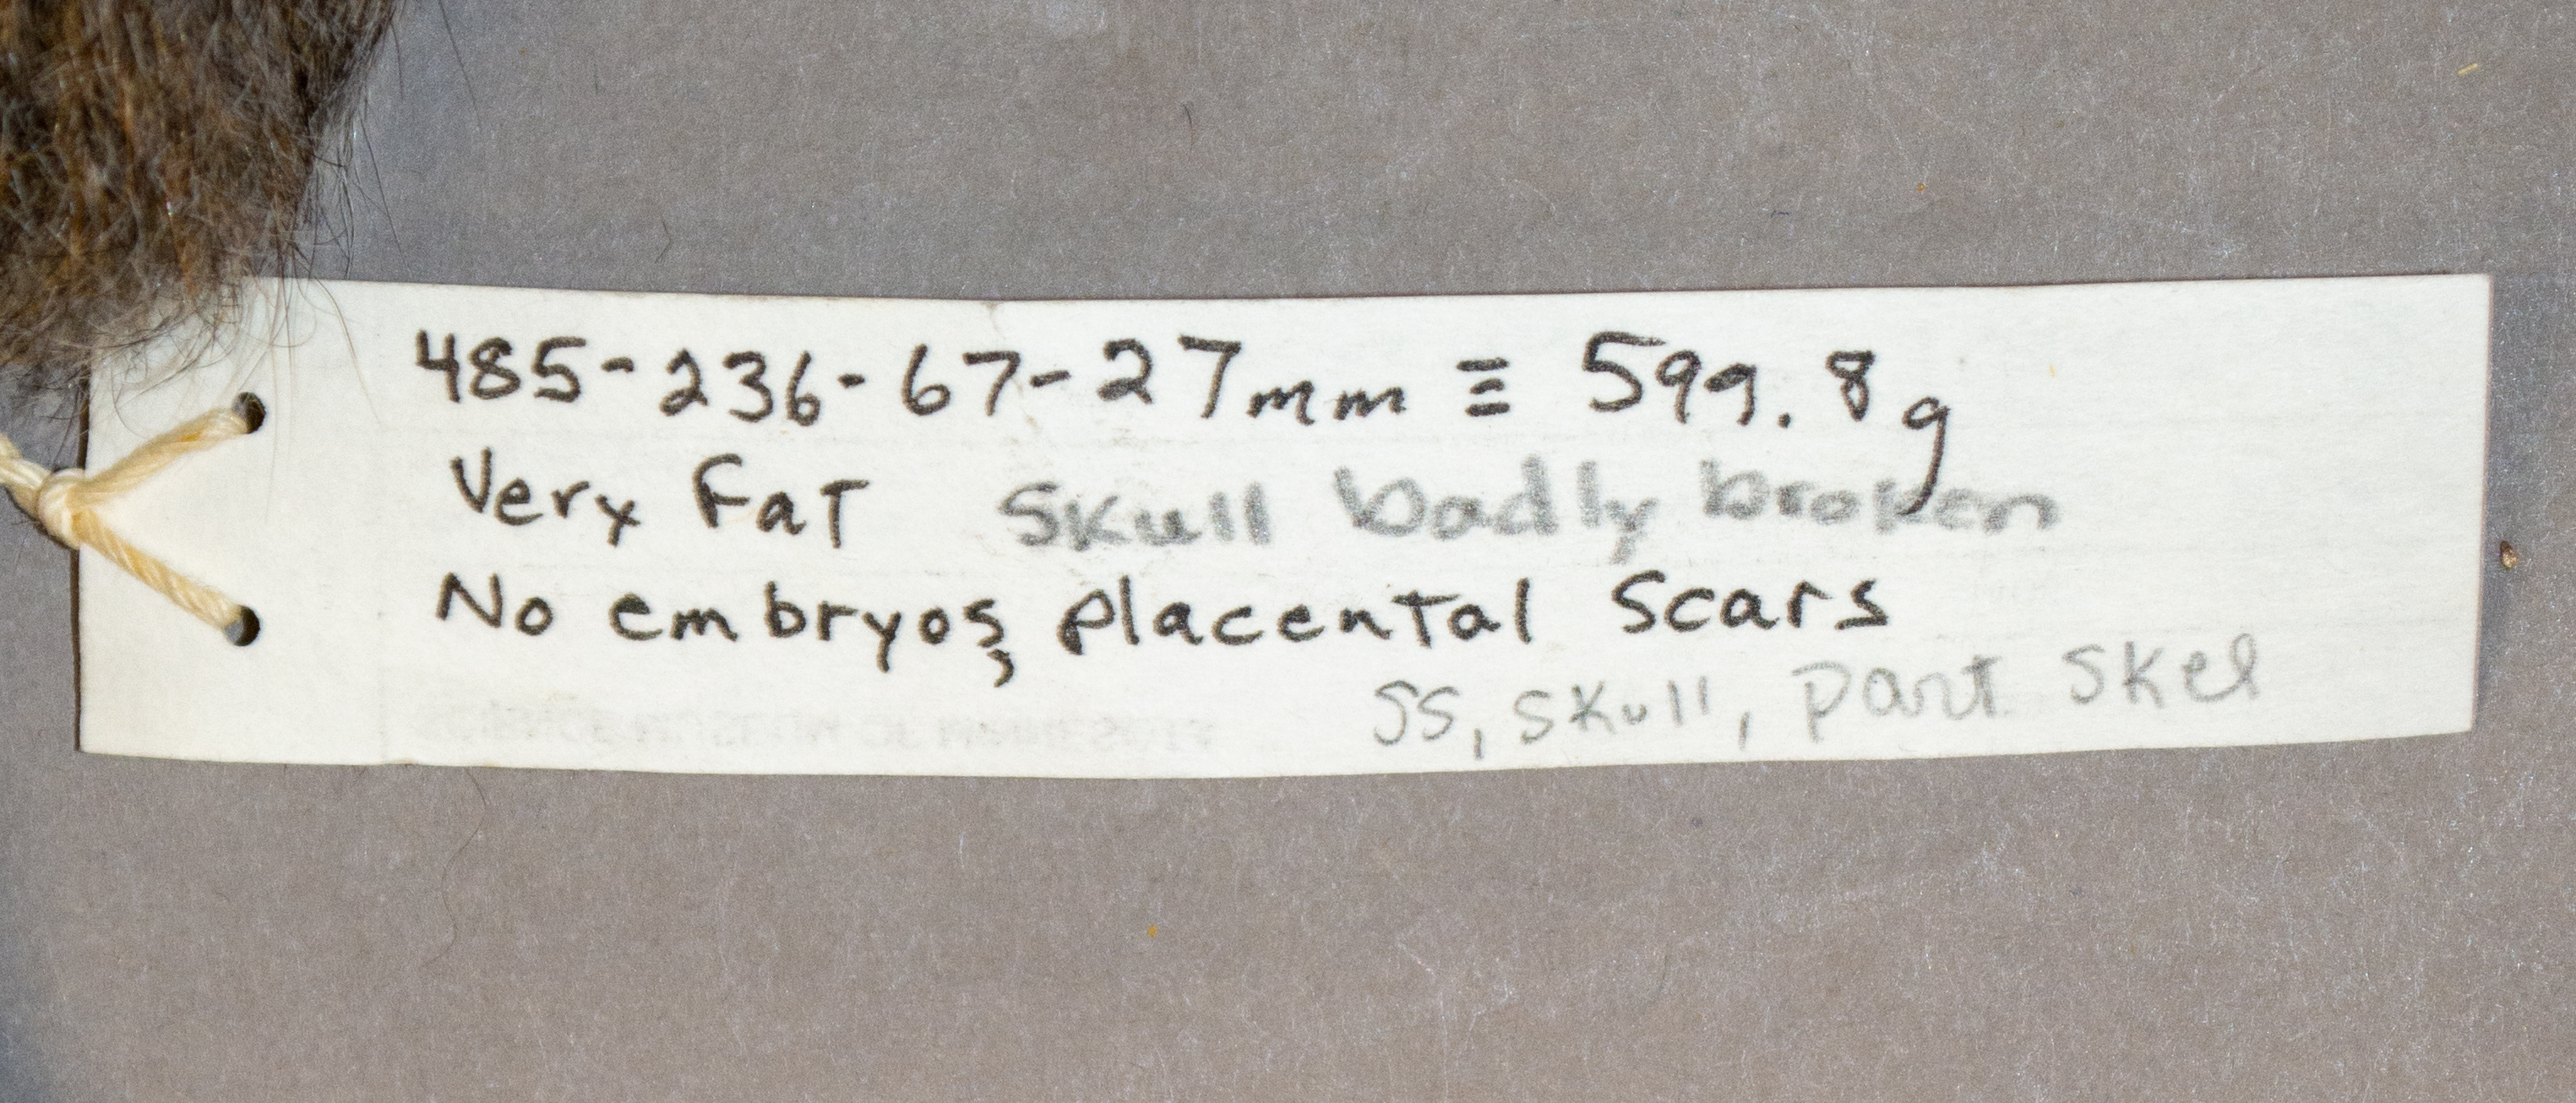 485-236-67-27mm ≡ 599.8g
Very Fat Skull badly broken
No embryos, placental scars
SS, skull, part skel